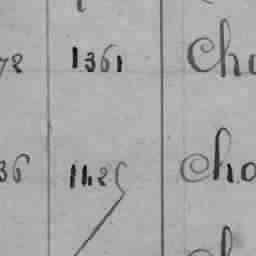 72 1361 Cha
36 1425 Cha